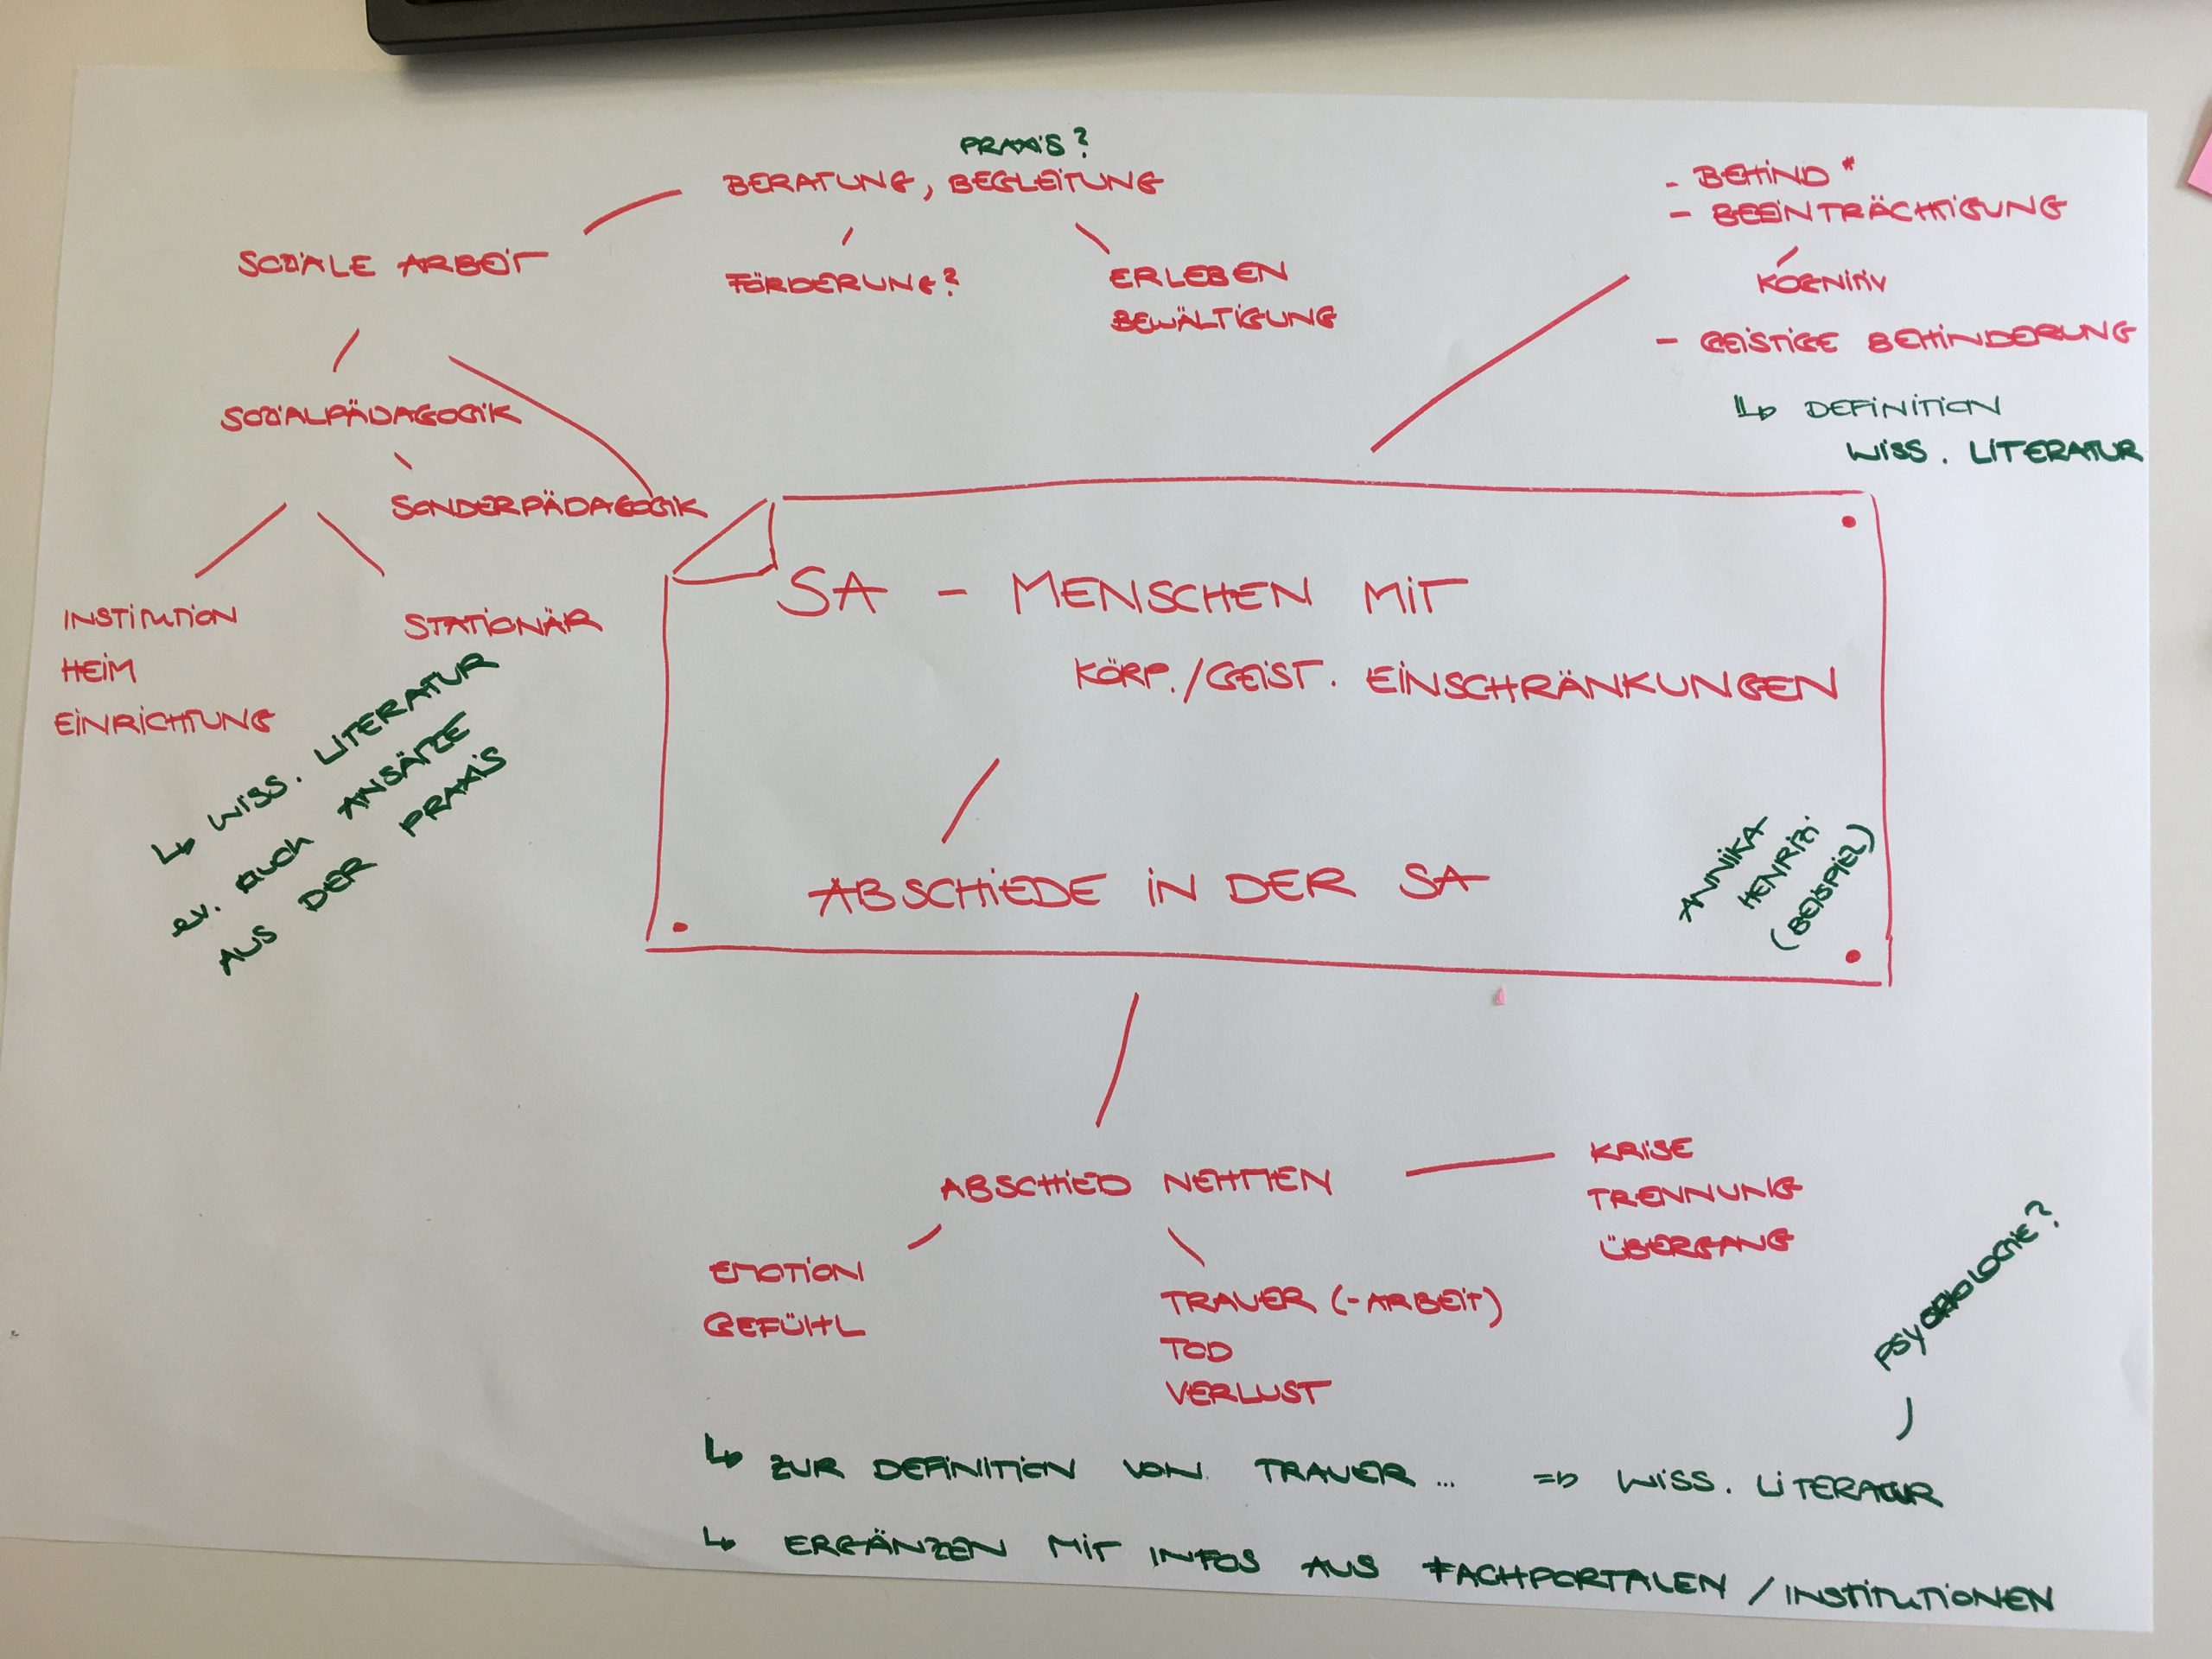 PRAXIS?
BERATUNG, BEGLEITUNG
FÖRDERUNG?
ERLEBEN
BEWÄLTIGUNG
SOZIALE ARBEIT
SOZIALPÄDAGOGIK
SONDERPÄDAGOGIK
INSTITUTION
HEIM
EINRICHTUNG
STATIONÄR
↳ WISS. LITERATUR
ev. AUCH ANSÄTZE
AUS DER PRAXIS
- BEHIND*
- BEEINTRÄCHTIGUNG
KOGNITIV
- GEISTIGE BEHINDERUNG
↳ DEFINITION
WISS. LITERATUR
SA - MENSCHEN MIT
KÖRP./GEIST. EINSCHRÄNKUNGEN
ABSCHIEDE IN DER SA
ANNIKA
HENRIZI
(BEISPIEL)
ABSCHIED NEHMEN
KRISE
TRENNUNG
ÜBERGANG
EMOTION
GEFÜHL
TRAUER (-ARBEIT)
TOD
VERLUST
PSYCHOLOGIE?
↳ ZUR DEFINITION VON TRAUER ... => WISS. LITERATUR
↳ ERGÄNZEN MIT INFOS AUS FACHPORTALEN / INSTITUTIONEN